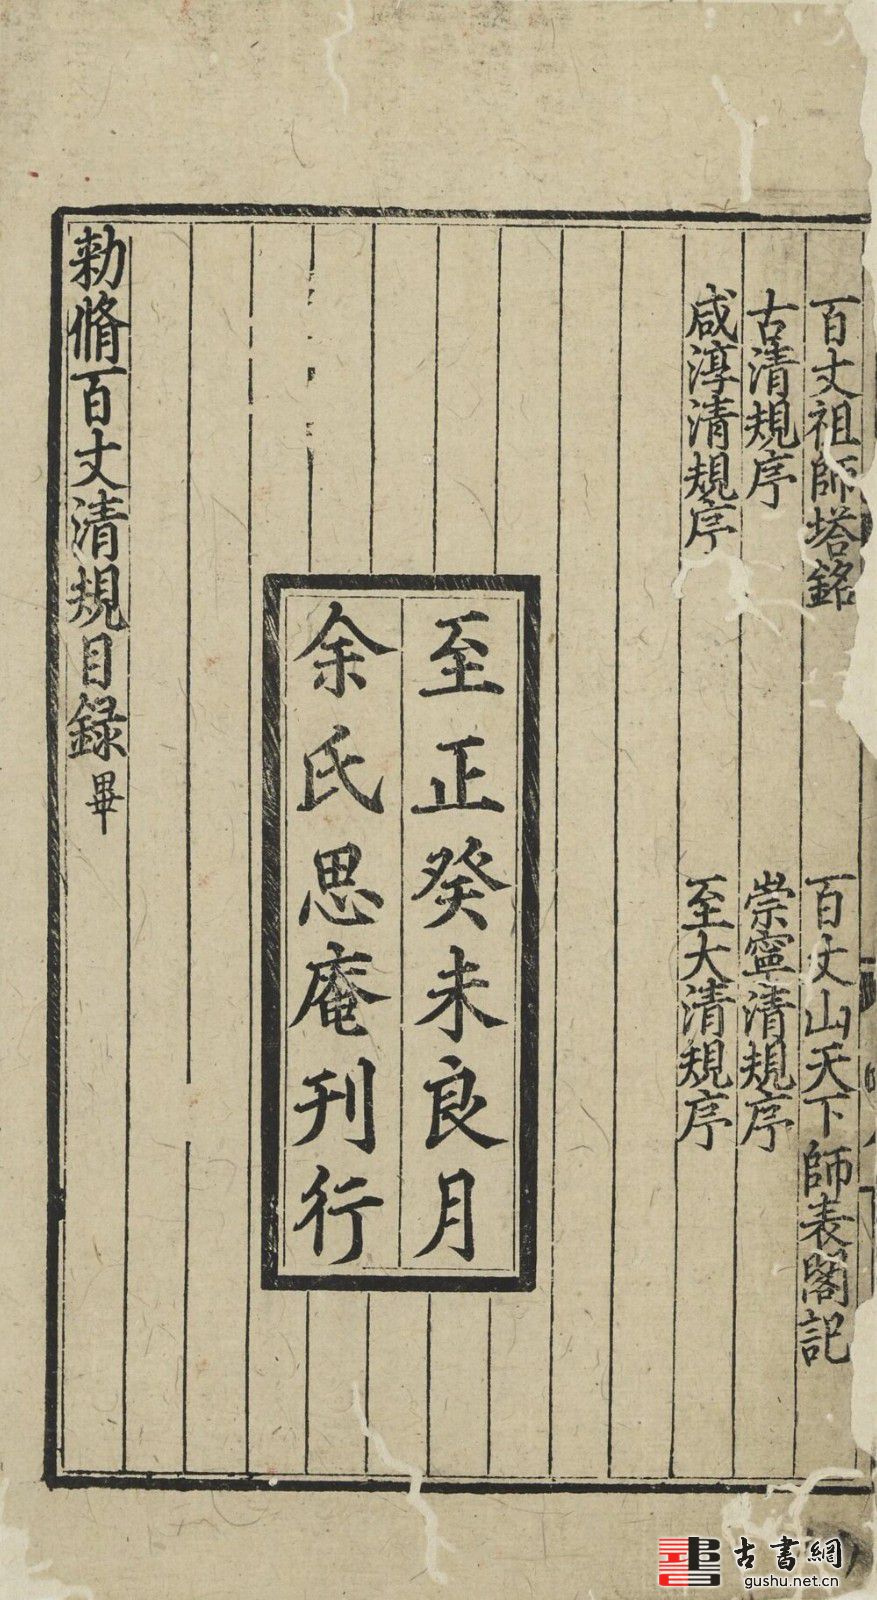 百丈祖師塔銘 百丈山天下師表閣記
古清規序 崇寧清規序
咸淳清規序 至大清規序
至正癸未良月
余氏思庵刊行
勑脩百丈清規目録畢
古書網
gushu.net.cn